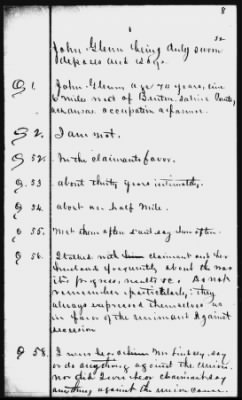 8
John Glenn being duly sworn
deposes and says.
Q 1. John Glenn age 70 years, live
6 miles west of Benton Saline County
Arkansas occupation a farmer.
Q 2. I am not.
Q 52. In the claimants favor.
Q 53 about thirty years intimately.
Q 54. about one half mile.
Q 55. Met them often and say him often.
Q 56. I talked with claimant and her
husband frequently about the war
its progress, results &c. Do not
remember particularly; they
always expressed themselves as
in favor of the Union and against
secession
Q 58. I never Mr Lindsey, say
or do anything against the Union.
nor did I ever hear claimant say
anything against the union cause.